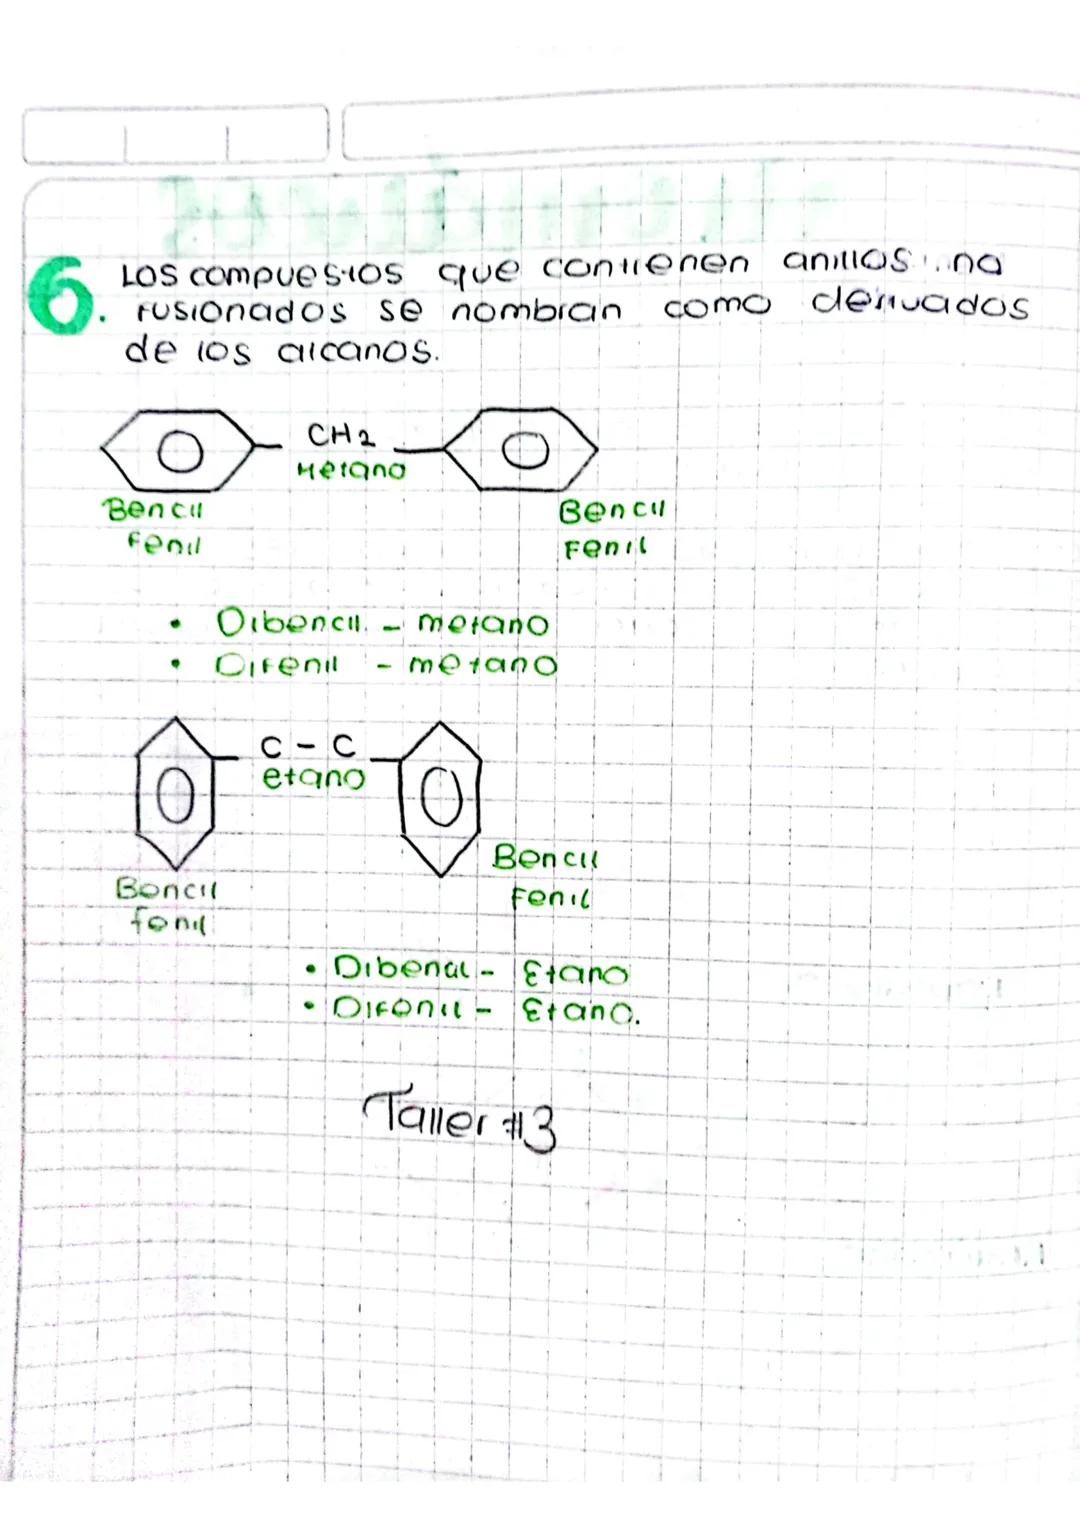 6. Los compuestos que contienen anillos no
fusionados se nombran como derivados
de los alcanos.
CH2
Metano
Bencil
fenil
Bencil
Fenil
• Dibencil - metano
• Difenil - metano
C - C
etano
Bencil
Fenil
Bencil
fenil
• Dibencil - Etano
• Difenil - Etano.
Taller #3